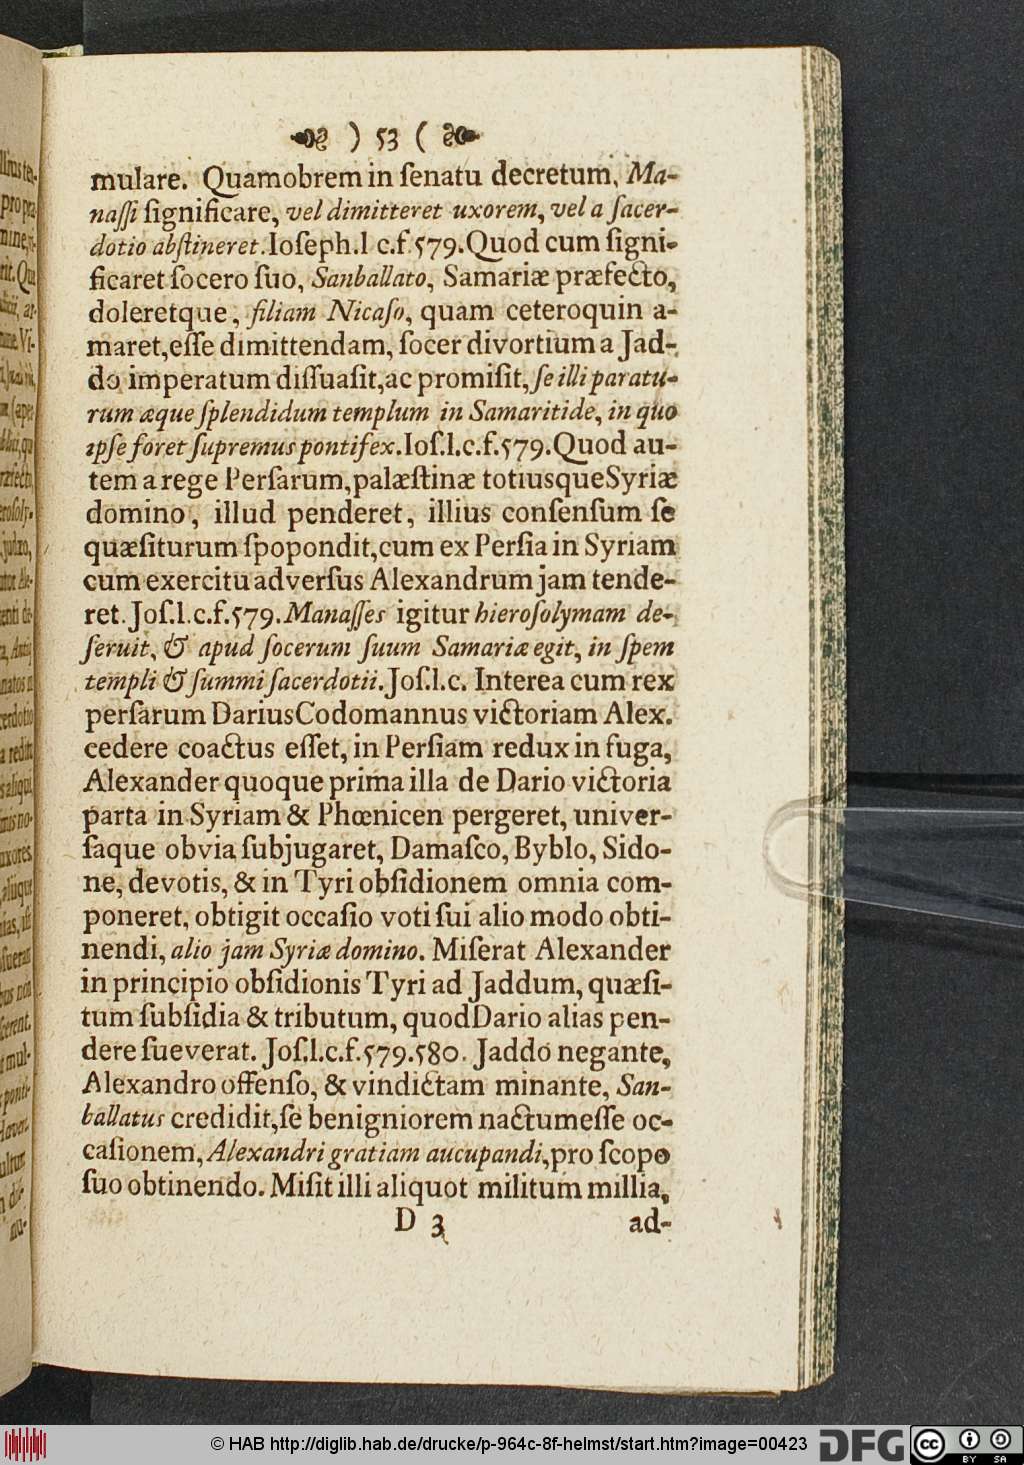 ) 53 (
mulare. Quamobrem in ſenatu decretum, Ma-
naſſi ſignificare, vel dimitteret uxorem, vel a ſacer-
dotio abſtineret. Ioſeph. l c. f. 579. Quod cum ſigni-
ficaret ſocero ſuo, Sanballato, Samariæ præfecto,
doleretque, filiam Nicaſo, quam ceteroquin a-
maret, eſſe dimittendam, ſocer divortium a Jad-
do imperatum diſſuaſit, ac promiſit, ſe illi paratu-
rum æque ſplendidum templum in Samaritide, in quo
ipſe foret ſupremus pontifex. Ioſ. l. c. f. 579. Quod au-
tem a rege Perſarum, palæſtinæ totiusque Syriæ
domino, illud penderet, illius conſenſum ſe
quæſiturum ſpopondit, cum ex Perſia in Syriam
cum exercitu adverſus Alexandrum jam tende-
ret. Joſ. l. c. f. 579. Manaſſes igitur hieroſolymam de-
ſeruit, & apud ſocerum ſuum Samariæ egit, in ſpem
templi & ſummi ſacerdotii. Joſ. l. c. Interea cum rex
perſarum Darius Codomannus victoriam Alex.
cedere coactus eſſet, in Perſiam redux in fuga,
Alexander quoque prima illa de Dario victoria
parta in Syriam & Phœnicen pergeret, univer-
ſaque obvia ſubjugaret, Damaſco, Byblo, Sido-
ne, devotis, & in Tyri obſidionem omnia com-
poneret, obtigit occaſio voti ſui alio modo obti-
nendi, alio jam Syriæ domino. Miſerat Alexander
in principio obſidionis Tyri ad Jaddum, quæſi-
tum ſubſidia & tributum, quod Dario alias pen-
dere ſueverat. Joſ. l. c. f. 579. 580. Jaddo negante,
Alexandro offenſo, & vindictam minante, San-
ballatus credidit, ſe benigniorem nactum eſſe oc-
caſionem, Alexandri gratiam aucupandi, pro ſcopo
ſuo obtinendo. Miſit illi aliquot militum millia,
D 3 ad-
© HAB http://diglib.hab.de/drucke/p-964c-8f-helmst/start.htm?image=00423
DFG
cc BY SA